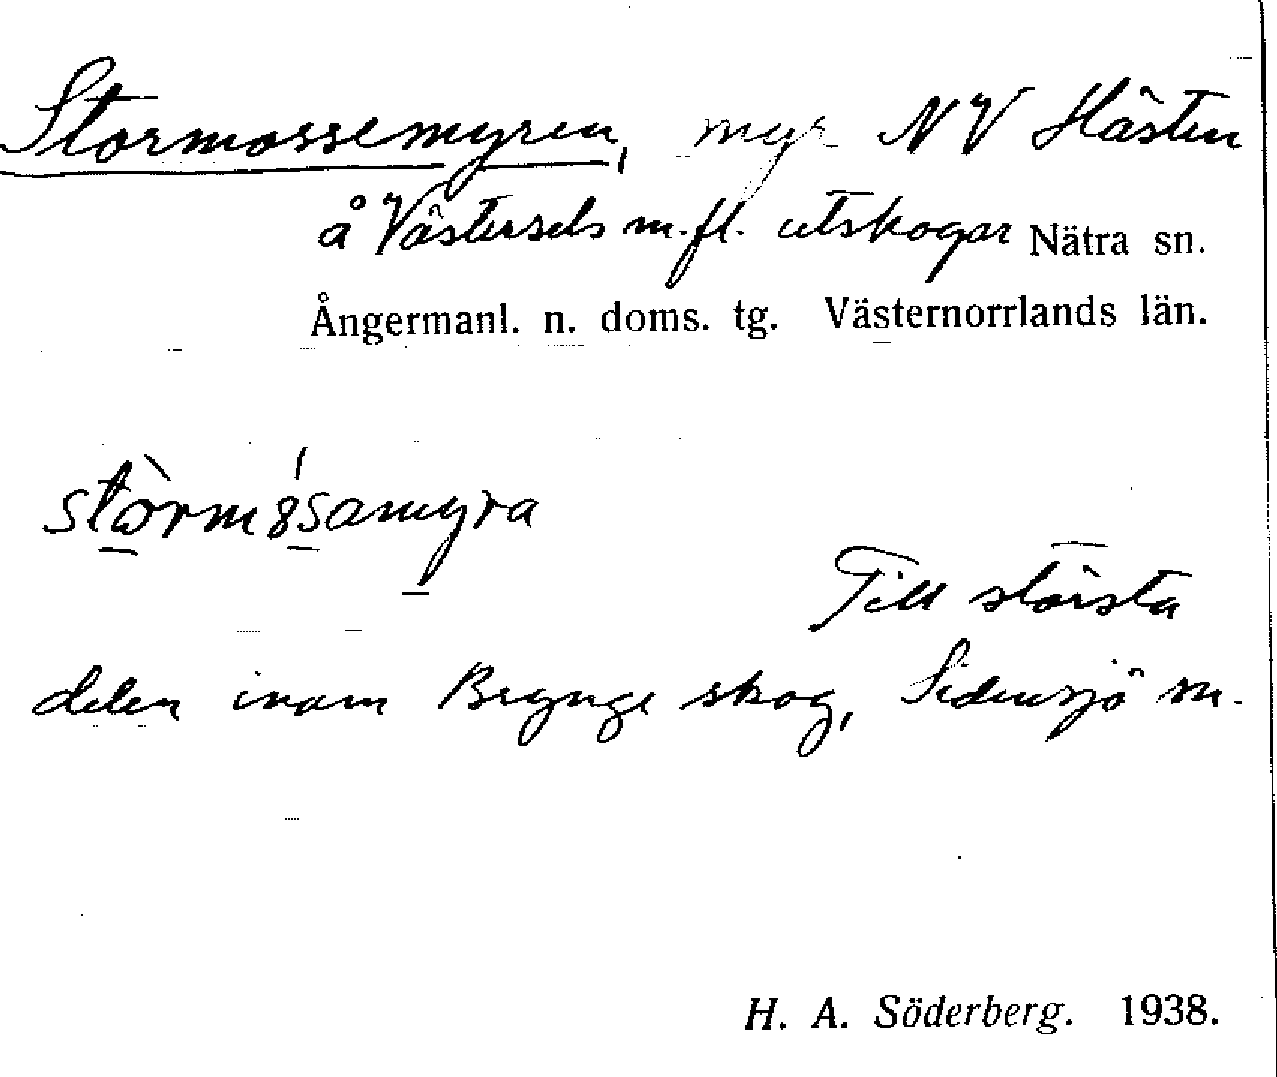 Stormossemyren, myr NV Hästen
å Västersels m.fl. utskogar Nätra sn.
Ångermanl. n. doms. tg. Västernorrlands län.
stòrmósamyra
Till största
delen inom Brynge skog, Sidensjö sn.
H. A. Söderberg. 1938.